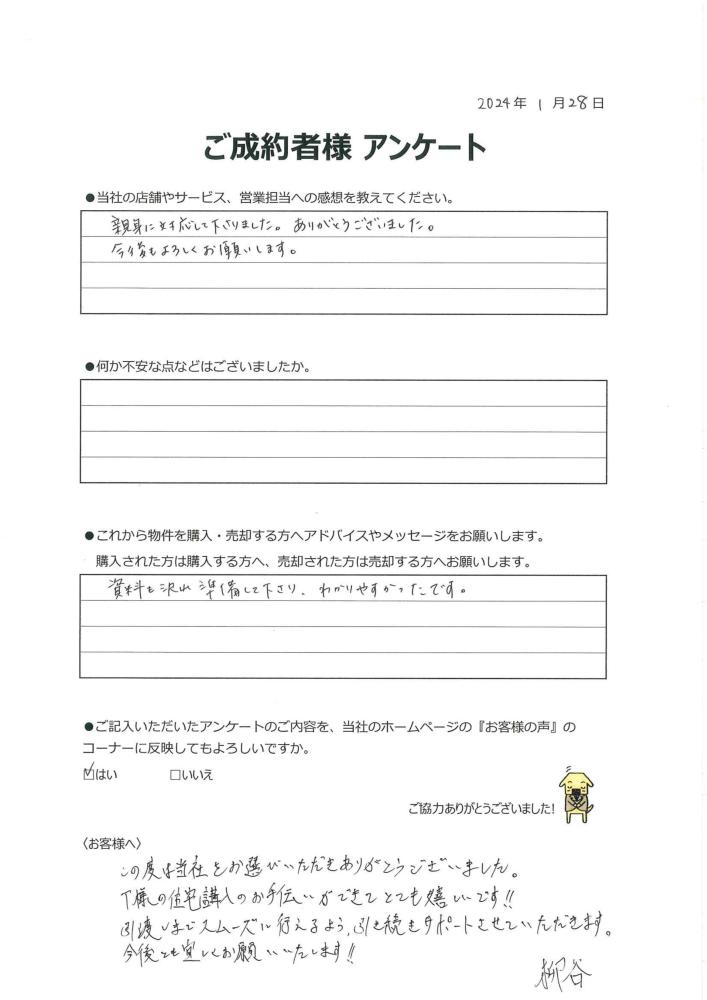 2024年 1月28日
ご成約者様 アンケート
●当社の店舗やサービス、営業担当への感想を教えてください。
親身に対応して下さりました。ありがとうございました。
今後もよろしくお願いします。
●何か不安な点などはございましたか。
●これから物件を購入・売却する方へアドバイスやメッセージをお願いします。
購入された方は購入する方へ、売却された方は売却する方へお願いします。
資料も沢山準備して下さり、わかりやすかったです。
●ご記入いただいたアンケートのご内容を、当社のホームページの『お客様の声』の
コーナーに反映してもよろしいですか。
☑はい □いいえ
ご協力ありがとうございました!
〈お客様へ〉
この度は当社をお選びいただきありがとうございました。
T様の住宅購入のお手伝いができてとても嬉しいです!!
引渡しまでスムーズに行えるよう、引き続きサポートさせていただきます。
今後とも宜しくお願いいたします!!
柳谷